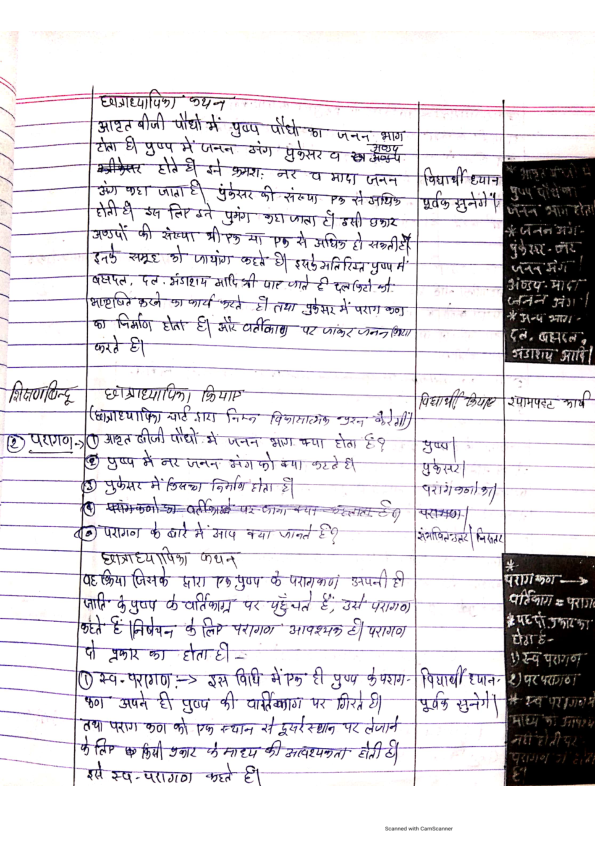 छात्राध्यापिका कथन
आवृत बीजी पौधों में पुष्प पौधों का जनन भाग
होता है। पुष्प में जनन अंग पुंकेसर व अण्डप
होते है। इने क्रमश: नर व मादा जनन
अंग कहा जाता है। पुंकेसर की संख्या एक से अधिक
होती है। इस लिए इने पुमंग कहा जाता है। इसी प्रकार
अण्डपों की संख्या भी एक या एक से अधिक हो सकती है।
इनके समूह को जायांग कहते है। इसके अतिरिक्त पुष्प में
बाह्यदल, दल, अंडाशय आदि भी पाए जाते है। दल किटो को
आकर्षित करने का कार्य करते है। तथा पुंकेसर में पराग कण
का निर्माण होता है। और वर्तिकाग्र पर जाकर जनन क्रिया
करते है।
विद्यार्थी ध्यान
पूर्वक सुनेंगे।
* आवृत बीजी
पुष्प पौधे का
जनन भाग होता
* जनन अंग-
पुंकेसर - नर
जनन अंग।
अण्डप- मादा
जनन अंग।
* अन्य भाग-
दल, बाह्यदल,
अंडाशय आदि।
शिक्षण बिन्दू छात्राध्यापिका क्रियाए विद्यार्थी क्रियाए श्यामपट्ट कार्य
(छात्राध्यापिका चार्ट द्वारा निम्न विकासात्मक प्रश्न करेगी)
② परागण-> ① आवृत बीजी पौधों में जनन भाग क्या होता है? पुष्प।
② पुष्प में नर जनन अंग को क्या कहते है। पुंकेसर।
③ पुंकेसर में किसका निर्माण होता है। परागकणों का।
④ परागकणों का वर्तिकाग्र पर जाना क्या कहलाता है। परागण।
⑤ परागण के बारे में आप क्या जानते है? संभावित उत्तर/निरुत्तर
छात्राध्यापिका कथन
वह क्रिया जिसके द्वारा एक पुष्प के परागकण अपनी ही
जाति के पुष्प के वर्तिकाग्र पर पहुँचते हैं, उसे परागण
कहते हैं। निषेचन के लिए परागण आवश्यक है। परागण
दो प्रकार का होता है।-
① स्व-परागण :-> इस विधि में एक ही पुष्प के पराग-
कण अपने ही पुष्प की वर्तिकाग्र पर गिरते है।
तथा पराग कण को एक स्थान से दूसरे स्थान पर लेजाने
के लिए किसी प्रकार के माध्य की आवश्यकता होती है।
इसे स्व-परागण कहते है।
विद्यार्थी ध्यान-
पूर्वक सुनेगे।
*
पराग कण ->
वर्तिकाग्र = परागण
* यह दो प्रकार का
होता है-
1) स्व परागण
2) पर परागण
* स्व परागण में
माध्य की आवश्य
परागण में होती
है।
Scanned with CamScanner